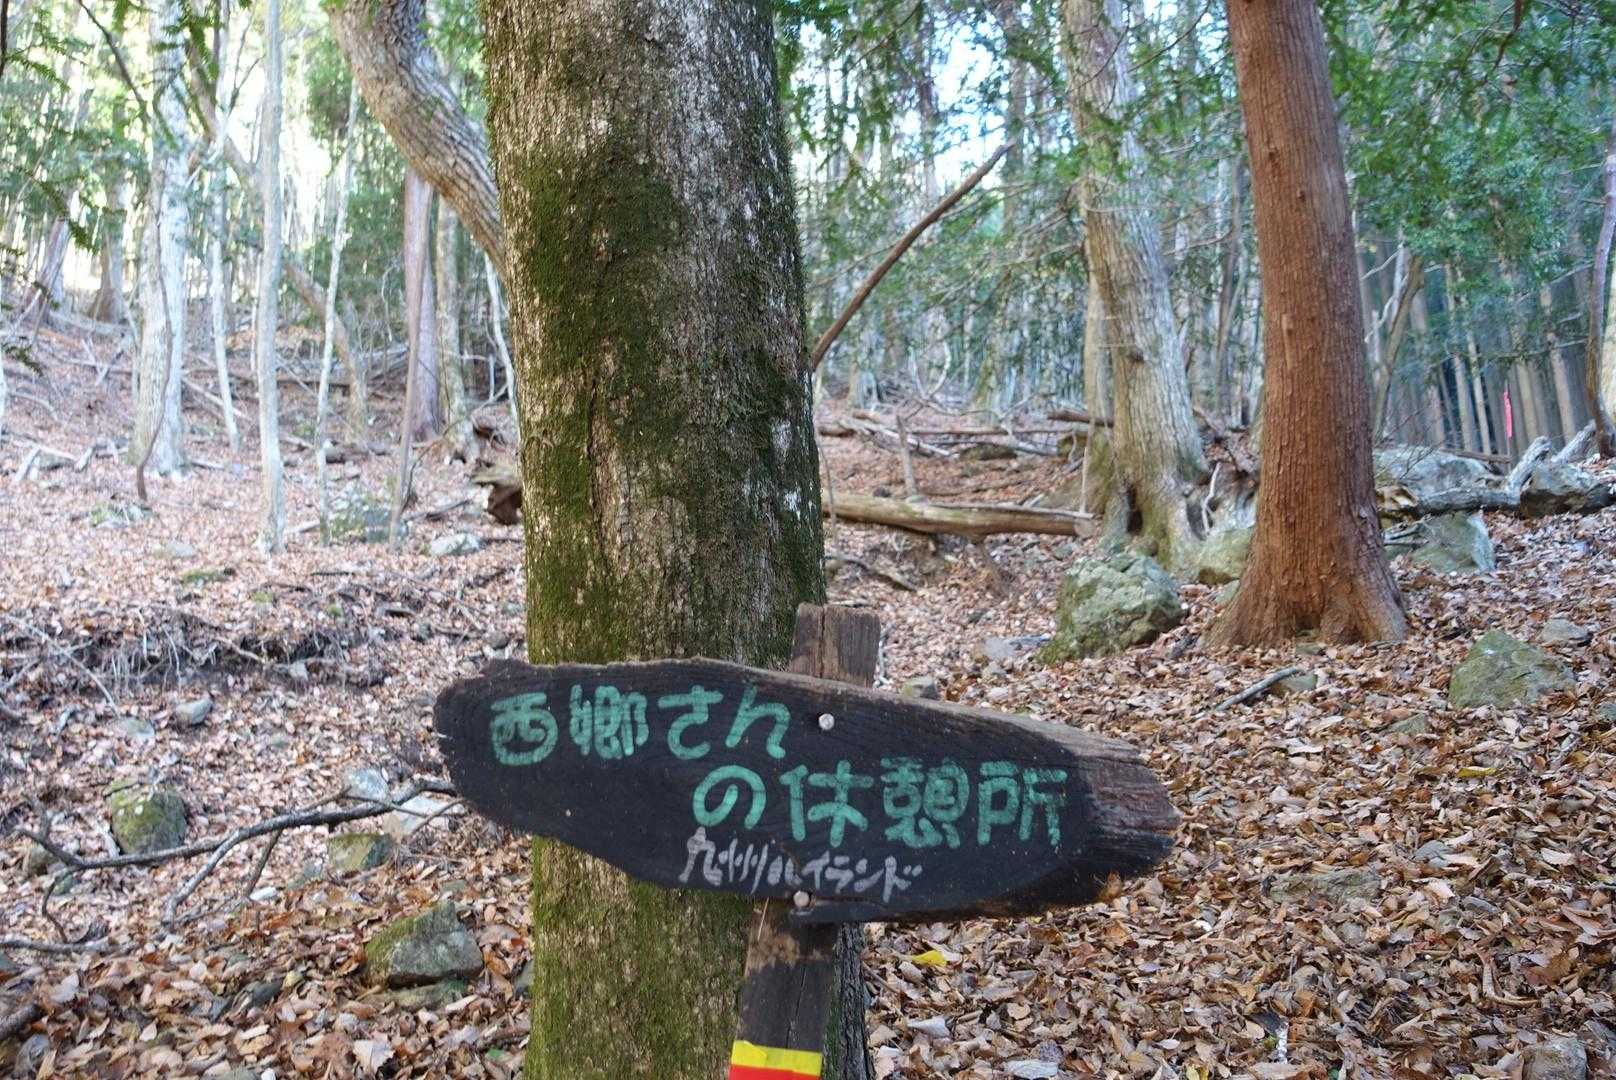 西郷さん
の休憩所
九州ハイランド